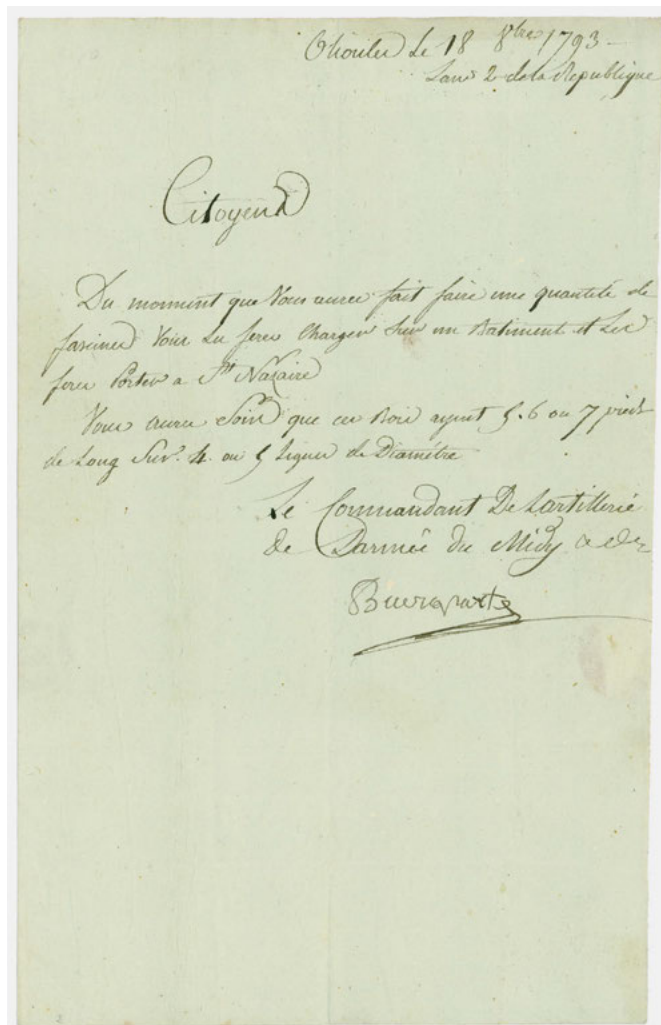 Ollioules Le 18 8bre 1793 –
Lan 2 de la Republique
Citoyens
Du moment que Vous aurez fait faire une quantité de
fascines Vous Les ferez Charger Sur un Batiment et Les
ferez Porter a St Nazaire
Vous aurez Soin que ces Bois ayent 5. 6 ou 7 pieds
de Long Sur 4 ou 5 Lignes de Diamétre
Le Commandant De Lartillerie
de Larmée du Midy
Buonaparte